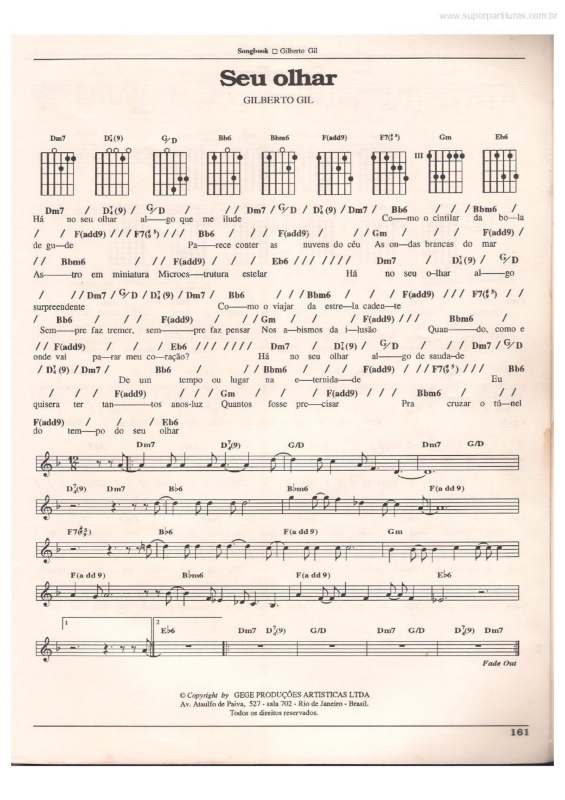 www.superpartituras.com.br
Songbook □ Gilberto Gil
Seu olhar
GILBERTO GIL
Dm7 D7/4(9) G/D Bb6 Bbm6 F(add9) F7(#5 9) Gm Eb6
III
Dm7 / D7/4(9) / G/D / / / Dm7 / G/D / D7/4(9) / Dm7 / Bb6 / / / Bbm6 /
Há no seu olhar al—go que me ilude Co—mo o cintilar da bo—la
/ / F(add9) / / / F7(#5 9) / / / Bb6 / / / F(add9) / / / Gm / / / F(add9) /
de gu—de Pa—rece conter as nuvens do céu As on—das brancas do mar
/ / Bbm6 / / / F(add9) / / / Eb6 / / / / / / / Dm7 / D7/4(9) / G/D
As—tro em miniatura Microes—trutura estelar Há no seu o—lhar al—go
/ / / Dm7 / G/D / D7/4(9) / Dm7 / Bb6 / / / Bbm6 / / / F(add9) / / / F7(#5 9) / /
surpreendente Co—mo o viajar da estre—la caden—te
/ Bb6 / / / F(add9) / / / Gm / / / F(add9) / / / Bbm6 /
Sem—pre faz tremer, sem—pre faz pensar Nos a—bismos da i—lusão Quan—do, como e
/ / F(add9) / / / Eb6 / / / / / / / Dm7 / D7/4(9) / G/D / / / Dm7 / G/D
onde vai pa—rar meu co—ração? Há no seu olhar al—go de sauda—de
/ D7/4(9) / Dm7 / Bb6 / / / Bbm6 / / / F(add9) / / / F7(#5 9) / / / Bb6
De um tempo ou lugar na e—ternida—de Eu
/ / / F(add9) / / / Gm / / / F(add9) / / / Bbm6 / /
quisera ter tan—tos anos-luz Quantos fosse pre—cisar Pra cruzar o tú—nel
F(add9) / / / Eb6
do tem—po do seu olhar
Dm7 D7/4(9) G/D Dm7 G/D
D7/4(9) Dm7 Bb6 Bbm6 F(add 9)
F7(#5 9) Bb6 F(add 9) Gm
F(add 9) Bbm6 F(add 9) Eb6
1 2 Eb6 Dm7 D7/4(9) G/D Dm7 G/D D7/4(9) Dm7
Fade Out
© Copyright by GEGE PRODUÇÕES ARTISTICAS LTDA
Av. Ataulfo de Paiva, 527 - sala 702 - Rio de Janeiro - Brasil.
Todos os direitos reservados.
161